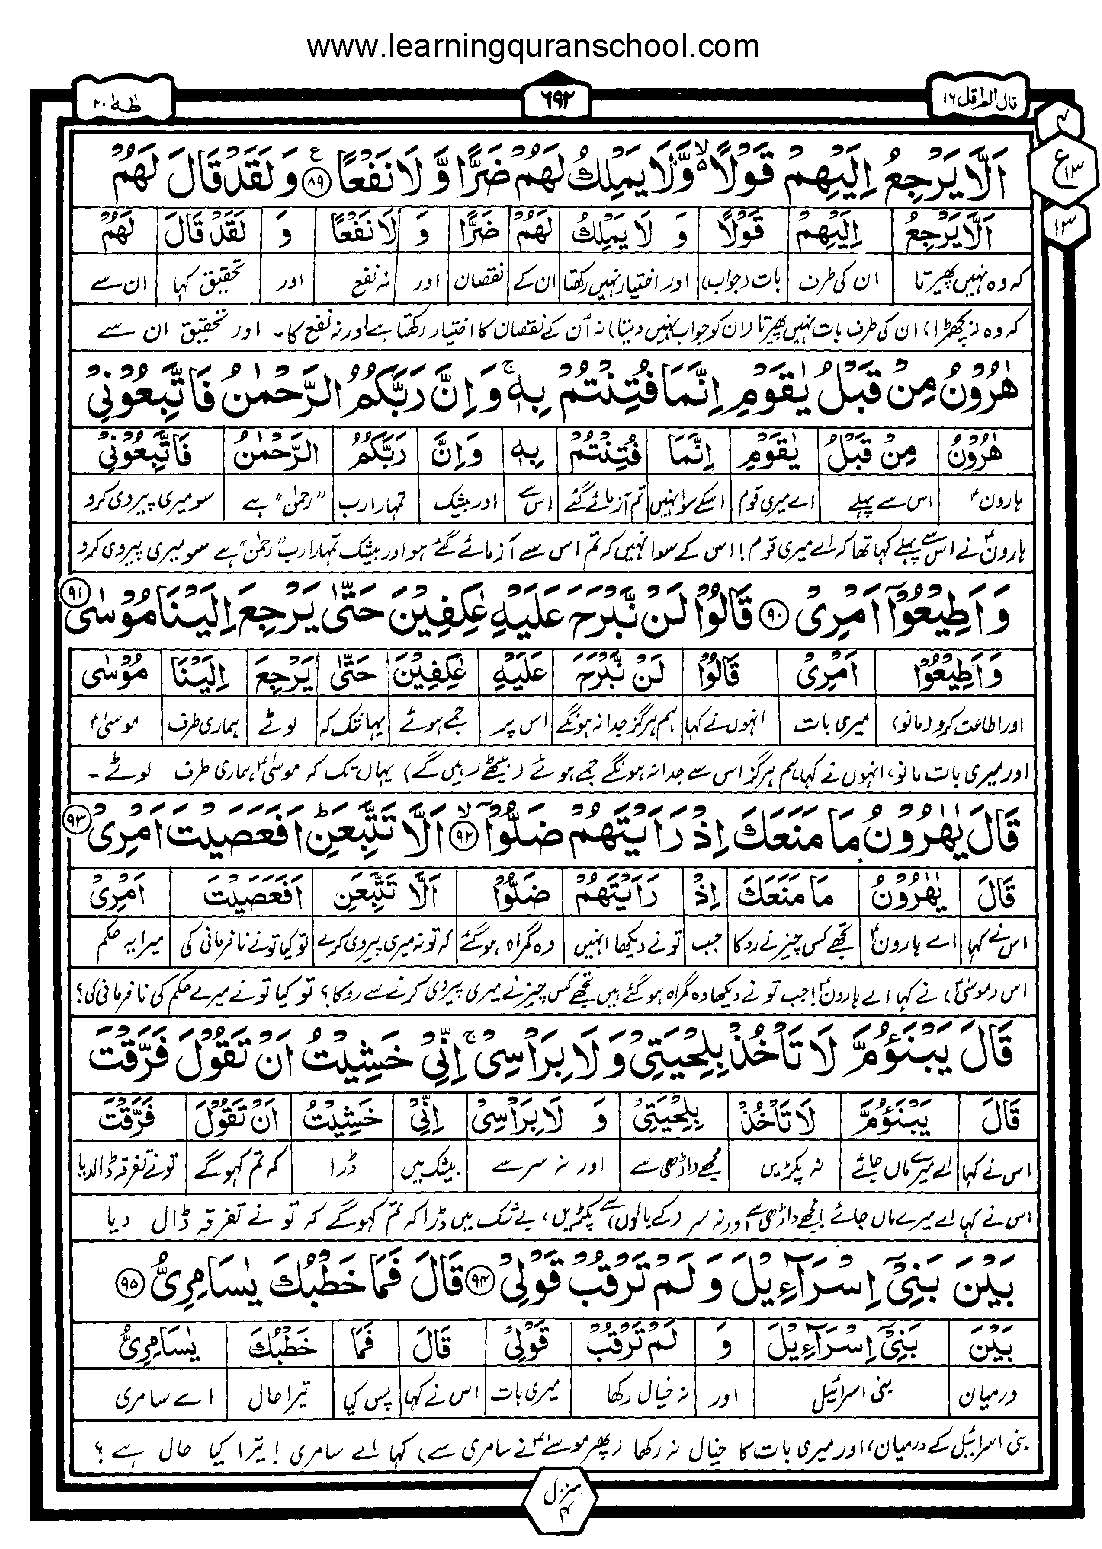 www.learningquranschool.com
قال الم اقل ۱۶
۶۹۲
طٰهٰ ۲۰
ع ۱۳
۱۳
اَلَّا يَرْجِعُ اِلَيْهِمْ قَوْلًا ۙ۬ وَّلَا يَمْلِكُ لَهُمْ ضَرًّا وَّ لَا نَفْعًا ۝۸۹ وَ لَقَدْ قَالَ لَهُمْ
اَلَّا يَرْجِعُ اِلَيْهِمْ قَوْلًا وَ لَا يَمْلِكُ لَهُمْ ضَرًّا وَ لَا نَفْعًا وَ لَقَدْ قَالَ لَهُمْ
کہ وہ نہیں پھیرتا ان کی طرف بات (جواب) اور اختیار نہیں رکھتا ان کے نقصان اور نہ نفع اور تحقیق کہا ان سے
کہ وہ (بچھڑا) ان کی طرف بات نہیں پھیرتا (ان کو جواب نہیں دیتا) نہ اُن کے نقصان کا اختیار رکھتا ہے اور نہ نفع کا۔ اور تحقیق ان سے
هٰرُوْنُ مِنْ قَبْلُ يٰقَوْمِ اِنَّمَا فُتِنْتُمْ بِهٖ ۚ وَ اِنَّ رَبَّكُمُ الرَّحْمٰنُ فَاتَّبِعُوْنِيْ
هٰرُوْنُ مِنْ قَبْلُ يٰقَوْمِ اِنَّمَا فُتِنْتُمْ بِهٖ وَاِنَّ رَبَّكُمُ الرَّحْمٰنُ فَاتَّبِعُوْنِيْ
ہارونؑ اس سے پہلے اے میری قوم اسکے سوا نہیں تم آزمائے گئے اس سے اور بیشک تمہارا رب "رحمٰن" ہے سو میری پیروی کرو
ہارونؑ نے اس سے پہلے کہا تھا کہ اے میری قوم! اس کے سوا نہیں کہ تم اس سے آزمائے گئے ہو اور بیشک تمہارا رب "رحمٰن" ہے سو میری پیروی کرو
وَ اَطِيْعُوْٓا اَمْرِيْ ۝۹۰ قَالُوْا لَنْ نَّبْرَحَ عَلَيْهِ عٰكِفِيْنَ حَتّٰى يَرْجِعَ اِلَيْنَا مُوْسٰى ۝۹۱
وَ اَطِيْعُوْا اَمْرِيْ قَالُوْا لَنْ نَّبْرَحَ عَلَيْهِ عٰكِفِيْنَ حَتّٰى يَرْجِعَ اِلَيْنَا مُوْسٰى
اور اطاعت کرو (مانو) میری بات انہوں نے کہا ہم ہرگز جدا نہ ہونگے اس پر جمے ہوئے یہانتک کہ لوٹے ہماری طرف موسیٰؑ
اور میری بات مانو، انہوں نے کہا ہم ہرگز اس سے جدا نہ ہونگے جمے ہوئے (بیٹھے رہیں گے) یہاں تک کہ موسیٰؑ ہماری طرف لوٹے۔
قَالَ يٰهٰرُوْنُ مَا مَنَعَكَ اِذْ رَاَيْتَهُمْ ضَلُّوْٓا ۙ ۝۹۲ اَلَّا تَتَّبِعَنِ ؕ اَفَعَصَيْتَ اَمْرِيْ ۝۹۳
قَالَ يٰهٰرُوْنُ مَا مَنَعَكَ اِذْ رَاَيْتَهُمْ ضَلُّوْا اَلَّا تَتَّبِعَنِ اَفَعَصَيْتَ اَمْرِيْ
اس نے کہا اے ہارونؑ تجھے کس چیز نے روکا جب تو نے دیکھا انہیں وہ گمراہ ہوگئے کہ تو نہ میری پیروی کرے تو کیا تو نے نافرمانی کی میرا یہ حکم
اس (موسیٰؑ) نے کہا اے ہارونؑ! جب تو نے دیکھا وہ گمراہ ہوگئے ہیں تجھے کس چیز نے میری پیروی کرنے سے روکا؟ تو کیا تو نے میرے حکم کی نافرمانی کی؟
قَالَ يَبْنَؤُمَّ لَا تَاْخُذْ بِلِحْيَتِيْ وَ لَا بِرَاْسِيْ ۚ اِنِّيْ خَشِيْتُ اَنْ تَقُوْلَ فَرَّقْتَ
قَالَ يَبْنَؤُمَّ لَا تَاْخُذْ بِلِحْيَتِيْ وَ لَا بِرَاْسِيْ اِنِّيْ خَشِيْتُ اَنْ تَقُوْلَ فَرَّقْتَ
اس نے کہا اے میرے ماں جائے نہ پکڑیں مجھے داڑھی سے اور نہ سر سے بیشک میں ڈرا کہ تم کہوگے تو نے تفرقہ ڈالدیا
اس نے کہا اے میرے ماں جائے! مجھے داڑھی سے اور نہ سر (کے بالوں) سے پکڑیں، بے شک میں ڈرا کہ تم کہوگے کہ تو نے تفرقہ ڈال دیا
بَيْنَ بَنِيْٓ اِسْرَآءِيْلَ وَ لَمْ تَرْقُبْ قَوْلِيْ ۝۹۴ قَالَ فَمَا خَطْبُكَ يٰسَامِرِيُّ ۝۹۵
بَيْنَ بَنِيْٓ اِسْرَآءِيْلَ وَ لَمْ تَرْقُبْ قَوْلِيْ قَالَ فَمَا خَطْبُكَ يٰسَامِرِيُّ
درمیان بنی اسرائیل اور نہ خیال رکھا میری بات اس نے کہا پس کیا تیرا حال اے سامری
بنی اسرائیل کے درمیان، اور میری بات کا خیال نہ رکھا (پھر موسےٰؑ نے سامری سے) کہا اے سامری! تیرا کیا حال ہے؟
منزل ۴